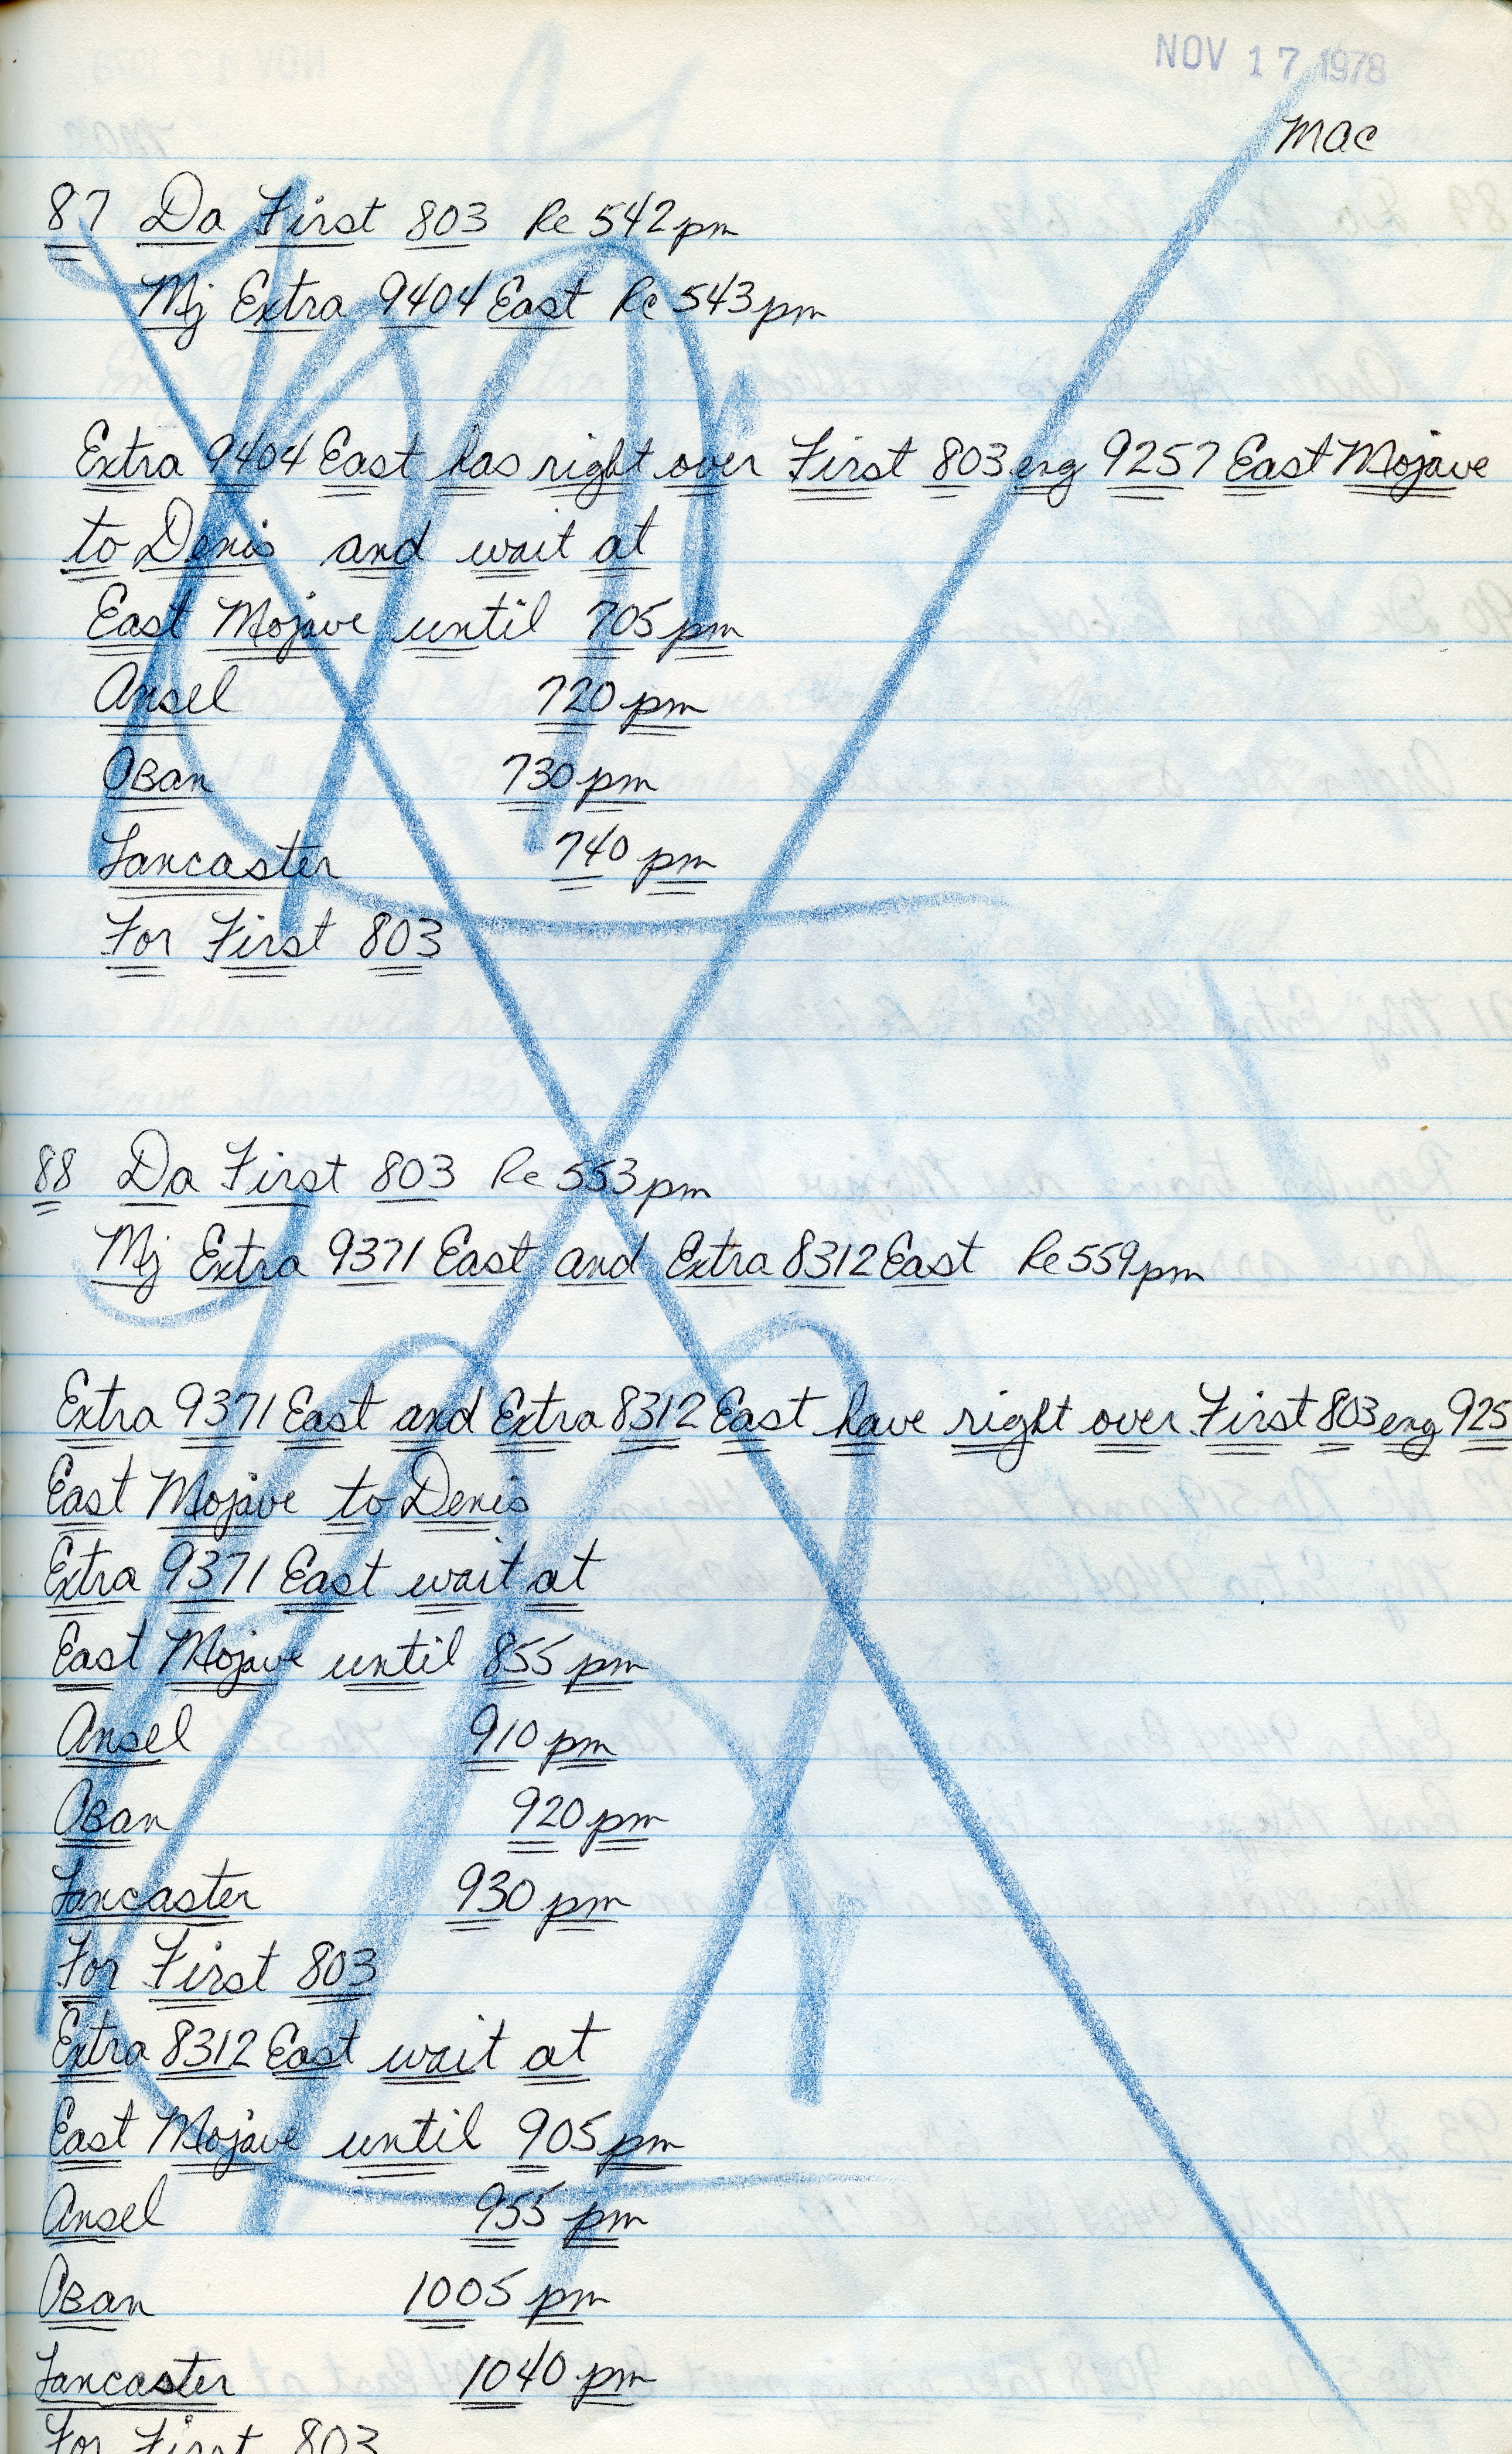 NOV 17 1978
MAC
87 Da First 803 Re 542 pm
Mj Extra 9404 East Re 543 pm
Extra 9404 East has right over First 803 eng 9257 East Mojave
to Denis and wait at
East Mojave until 705 pm
Ansel 720 pm
Oban 730 pm
Lancaster 740 pm
For First 803
88 Da First 803 Re 553 pm
Mj Extra 9371 East and Extra 8312 East Re 559 pm
Extra 9371 East and Extra 8312 East have right over First 803 eng 925
East Mojave to Denis
Extra 9371 East wait at
East Mojave until 855 pm
Ansel 910 pm
Oban 920 pm
Lancaster 930 pm
For First 803
Extra 8312 East wait at
East Mojave until 905 pm
Ansel 955 pm
Oban 1005 pm
Lancaster 1040 pm
For First 803